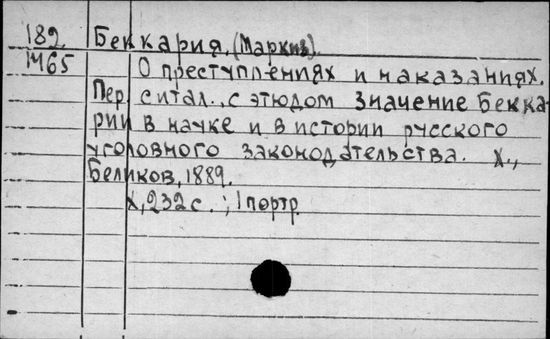 189.
1465
Беккария, (Маркиз).
О преступлениях и наказаниях.
Пер. с итал., с этюдом Значение Бекка-
рии в науке и в истории русского
уголовного законодательства. Х.,
Беликов, 1889.
X, 232 с. ; 1 портр.